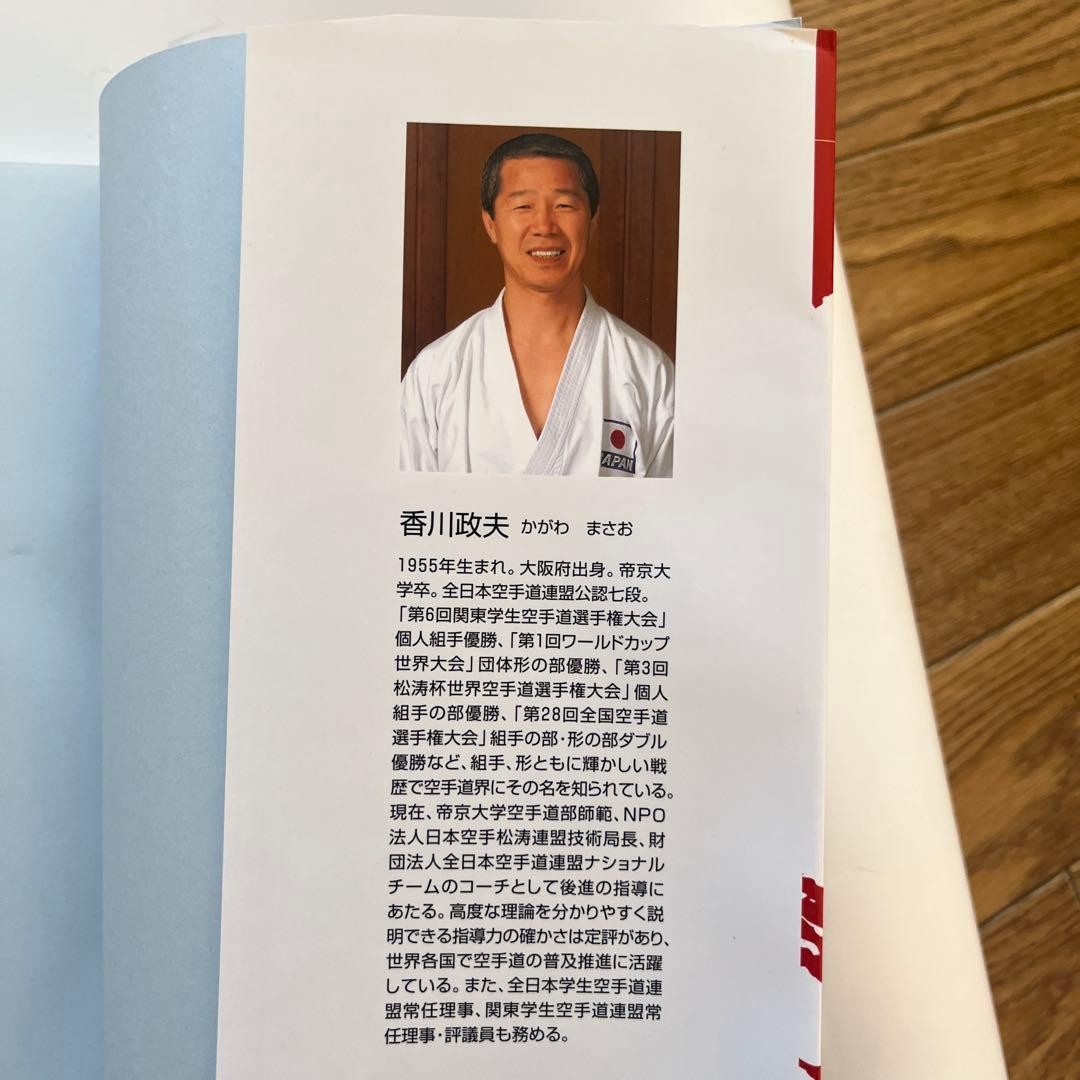 JAPAN
香川政夫 かがわ まさお
1955年生まれ。大阪府出身。帝京大
学卒。全日本空手道連盟公認七段。
「第6回関東学生空手道選手権大会」
個人組手優勝、「第1回ワールドカップ
世界大会」団体形の部優勝、「第3回
松涛杯世界空手道選手権大会」個人
組手の部優勝、「第28回全国空手道
選手権大会」組手の部・形の部ダブル
優勝など、組手、形ともに輝かしい戦
歴で空手道界にその名を知られている。
現在、帝京大学空手道部師範、NPO
法人日本空手松涛連盟技術局長、財
団法人全日本空手道連盟ナショナル
チームのコーチとして後進の指導に
あたる。高度な理論を分かりやすく説
明できる指導力の確かさは定評があり、
世界各国で空手道の普及推進に活躍
している。また、全日本学生空手道連
盟常任理事、関東学生空手道連盟常
任理事・評議員も務める。